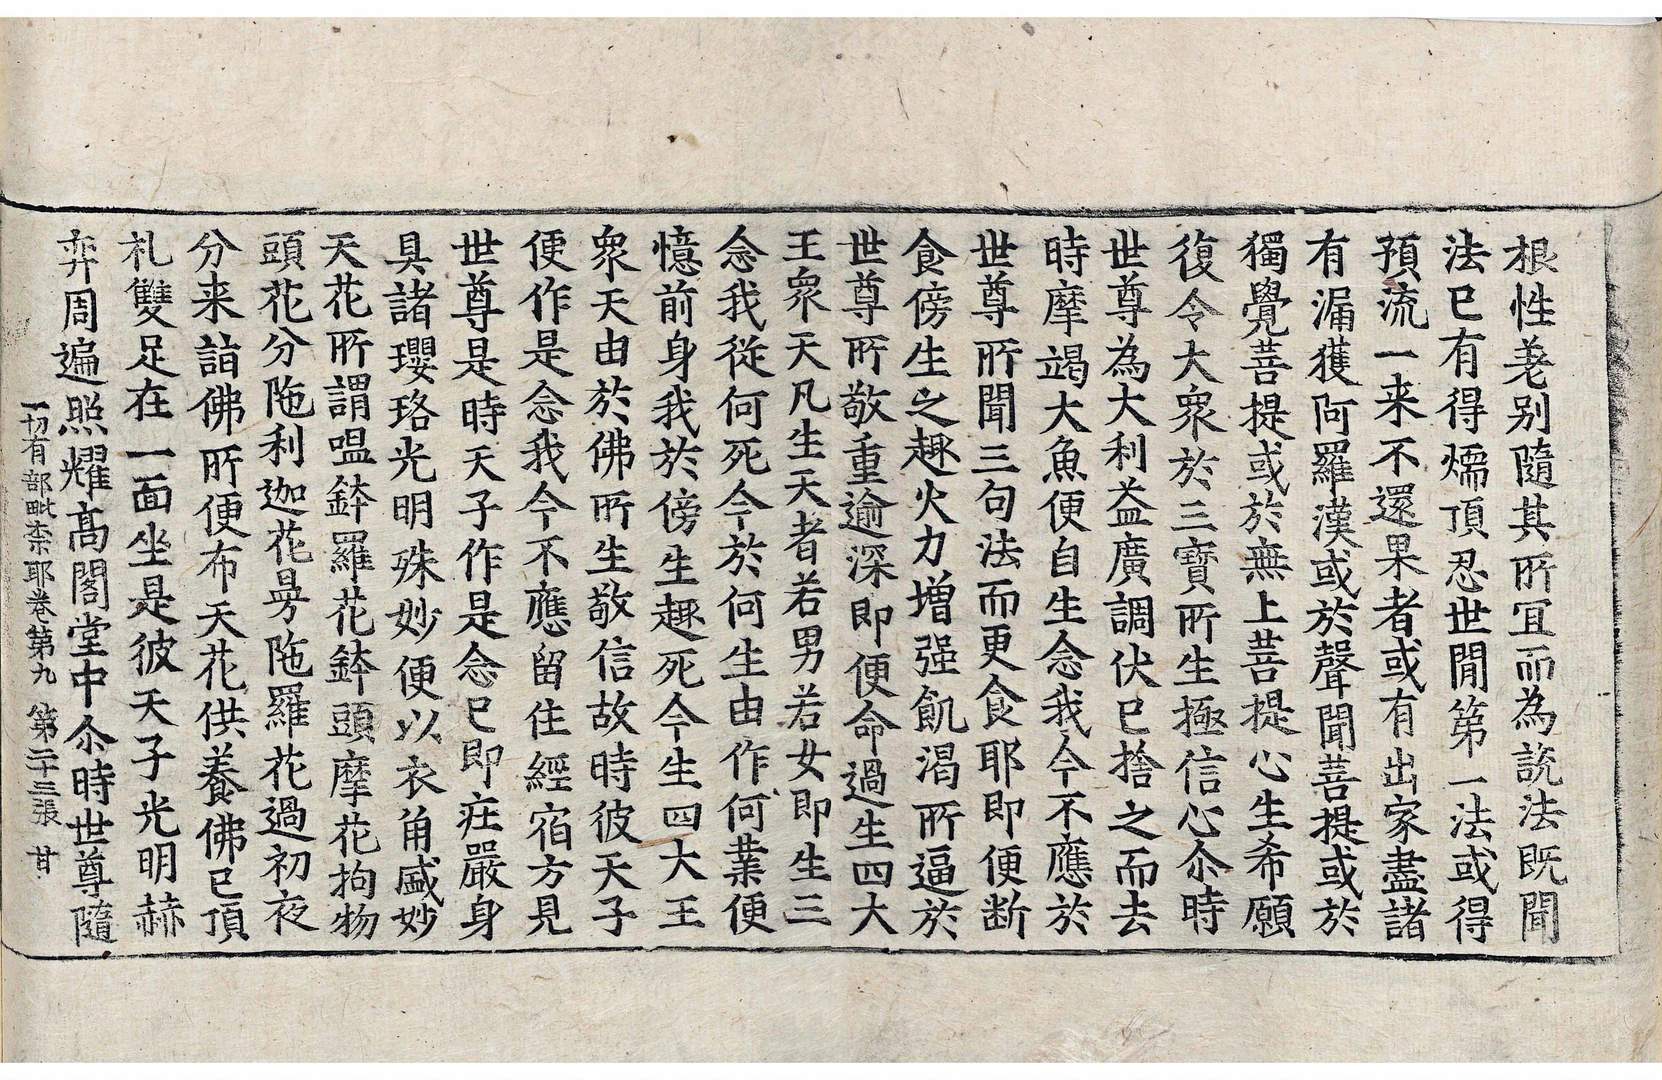 根性差别隨其所冝而為說法既聞
法已有得煗頂忍世閒第一法或得
預流一来不還果者或有出家盡諸
有漏獲阿羅漢或於聲聞菩提或於
獨覺菩提或於無上菩提心生希願
復令大衆於三寶所生極信心尒時
世尊為大利益廣調伏已捨之而去
時摩竭大魚便自生念我今不應於
世尊所聞三句法而更食耶即便断
食傍生之趣火力增强飢渴所逼於
世尊所敬重逾深即便命過生四大
王衆天凡生天者若男若女即生三
念我從何死今於何生由作何業便
憶前身我於傍生趣死今生四大王
衆天由於佛所生敬信故時彼天子
便作是念我今不應留住經宿方見
世尊是時天子作是念已即疘嚴身
具諸瓔珞光明殊妙便以衣角盛妙
天花所謂嗢鉢羅花鉢頭摩花拘物
頭花分陁利迦花曼陁羅花過初夜
分来詣佛所便布天花供養佛已頂
礼雙足在一面坐是彼天子光明赫
弈周遍照耀髙閣堂中尒時世尊隨
一切有部毗柰耶卷第九　第二十三張　甘